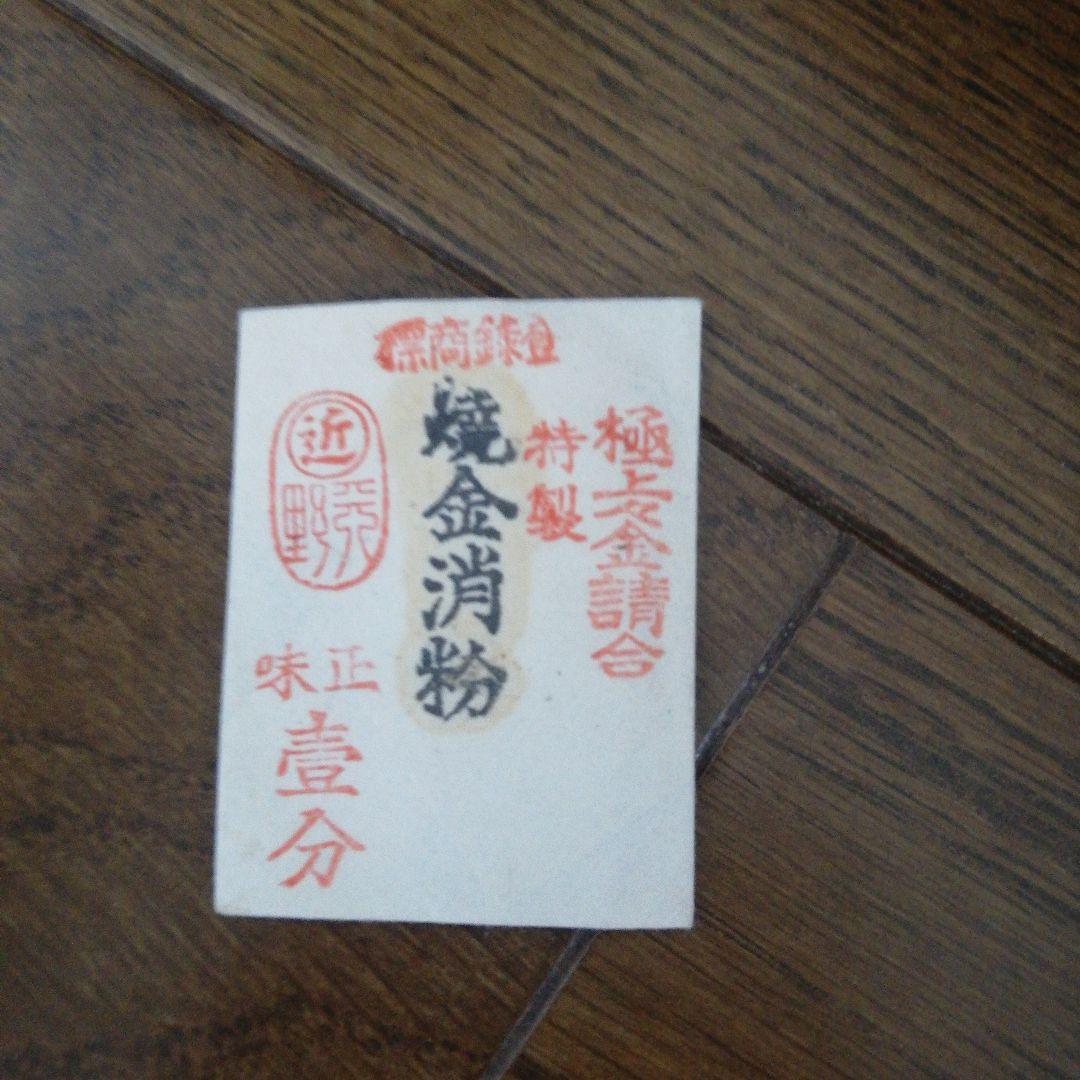 登錄商標
極上々金請合
特製
燒金消粉
近
正味
壹分